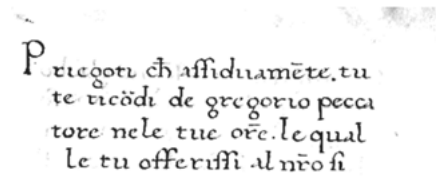 Priegoti ch̄ assiduamēte. tu
te ricōdi de gregorio pecca
tore nele tue or̄e. le qual
le tu offerissi al nr̄o si